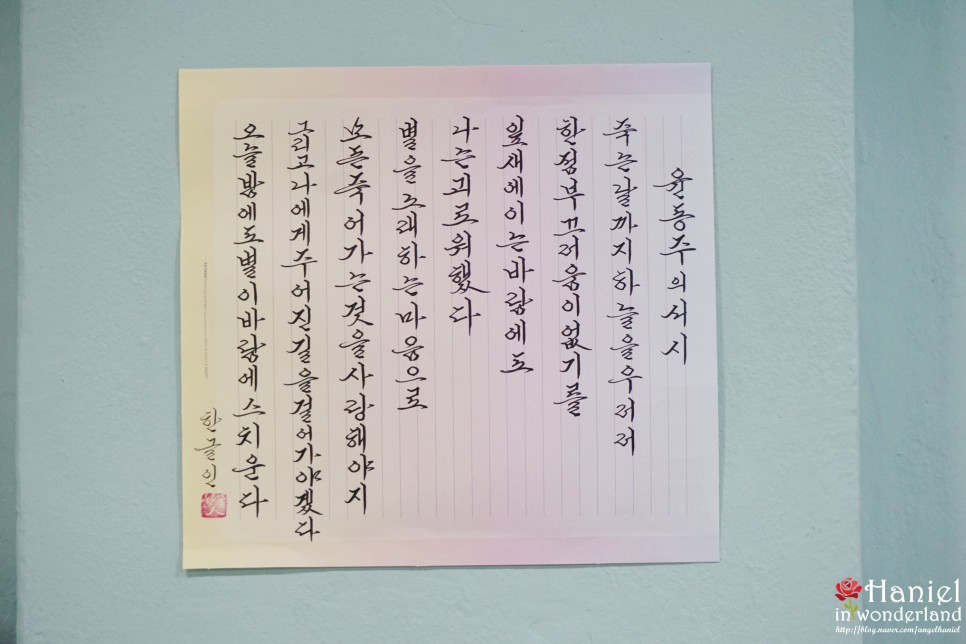 윤동주의서시
죽는날까지하늘을우러러
한점부끄러움이없기를
잎새에이는바람에도
나는괴로워했다
별을노래하는마음으로
모든죽어가는것을사랑해야지
그리고나에게주어진길을걸어가야겠다
오늘밤에도별이바람에스치운다
한글인
Haniel
in wonderland
http://blog.naver.com/angelhaniel